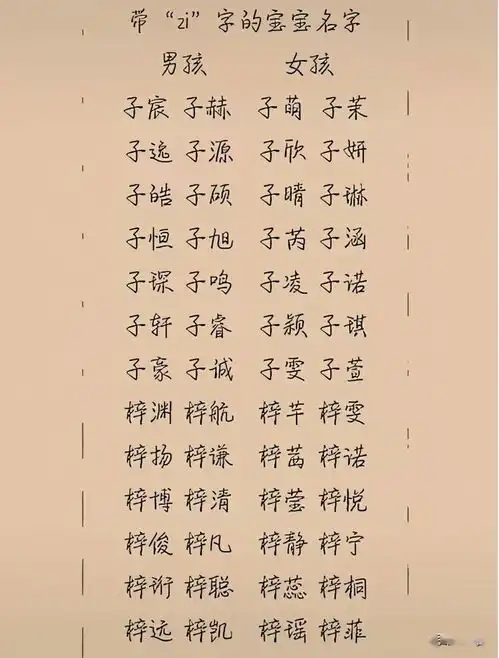 带“zi”字的宝宝名字
男孩 女孩
子宸 子赫 子萌 子茉
子逸 子源 子欣 子妍
子皓 子硕 子晴 子琳
子恒 子旭 子芮 子涵
子琛 子鸣 子凌 子诺
子轩 子睿 子颖 子琪
子豪 子诚 子雯 子萱
梓渊 梓航 梓芊 梓雯
梓扬 梓谦 梓茜 梓诺
梓博 梓清 梓莹 梓悦
梓俊 梓凡 梓静 梓宁
梓珩 梓聪 梓蕊 梓桐
梓远 梓凯 梓瑶 梓菲